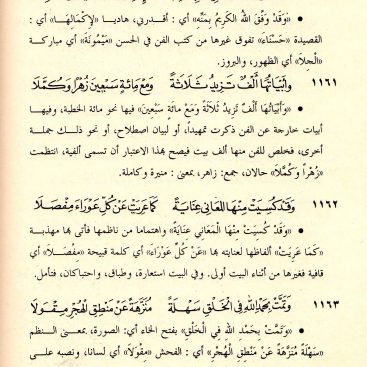 • «وَقَدْ وَفَّقَ اللهُ الكَرِيمُ بِمَنِّهِ» أي : أقدرني، هاديا «لِإِكْمَالِهَا» أي :
القصيدة «حَسْنَاءَ» تفوق غيرها من كتب الفن في الحسن «مَيْمُونَةَ» أي مباركة
«الْجِلَا» أي الظهور، والبروز.
١١٦١ وَأَبْيَاتُهَا أَلْفٌ تَزِيدُ ثَلَاثَةً وَمَعْ مِائَةٍ سَبْعِينَ زُهْرًا وَكُمَّلَا
• «وَأَبْيَاتُهَا أَلْفٌ تَزِيدُ ثَلَاثَةً وَمَعْ مِائَةٍ سَبْعِينَ» فيها نحو مائة الخطبة، وفيها
أبيات خارجة عن الفن ذكرت تمهيداً، أو لبيان اصطلاح، أو نحو ذلك جملة
أخرى، فخلص للفن منها ألف بيت فيصح بهذا الاعتبار أن تسمى ألفية، انتظمت
«زُهْراً وَكُمَّلَا» حالان، جمع: زاهر، بمعنى : منيرة وكاملة.
١١٦٢ وَقَدْ كُسِيَتْ مِنْهَا الْمَعَانِي عِنَايَةً كَمَا عَرِيَتْ عَنْ كُلِّ عَوْرَاءَ مِفْصَلَا
• «وَقَدْ كُسِيَتْ مِنْهَا الْمَعَانِي عِنَايَةً» واهتماما من ناظمها فأتى بها مهذبة
«كَمَا عَرِيَتْ» ألفاظها لعنايته بها «عَنْ كُلِّ عَوْرَاءَ» أي كلمة قبيحة «مِفْصَلَا» أي
قافية فغيرها من أثناء البيت أولى. وفي البيت استعارة، وطباق، واحتباكان، فتأمل.
١١٦٣ وَتَمَّتْ بِحَمْدِ اللهِ فِي الْخَلْقِ سَهْلَةً مُنَزَّهَةً عَنْ مَنْطِقِ الْهُجْرِ مِقْوَلَا
• «وَتَمَّتْ بِحَمْدِ اللهِ فِي الْخَلْقِ» بفتح الخاء أي: الصورة، بمعنى النظم
«سَهْلَةً مُنَزَّهَةً عَنْ مَنْطِقِ الْهُجْرِ» أي : الفحش «مِقْوَلَا» أي لسانا، ونصبه على